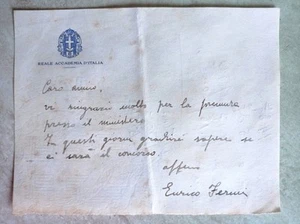 REALE ACCADEMIA D'ITALIA
Caro amico,
vi ringrazio molto per la premura
presso il ministero.
In questi giorni gradirei sapere se
ci sarà il concorso.
affmo
Enrico Fermi